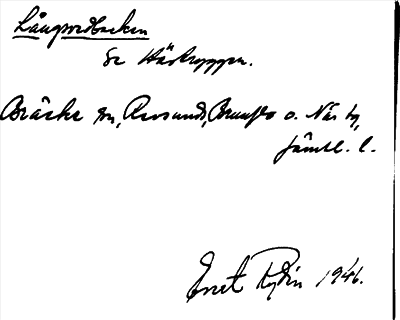 Långvedbacken
Se Häskroppen.
Bräcke sn, Revsunds, Brunflo o. Näs tg,
Jämtl. l.
Ernst Rydin 1946.